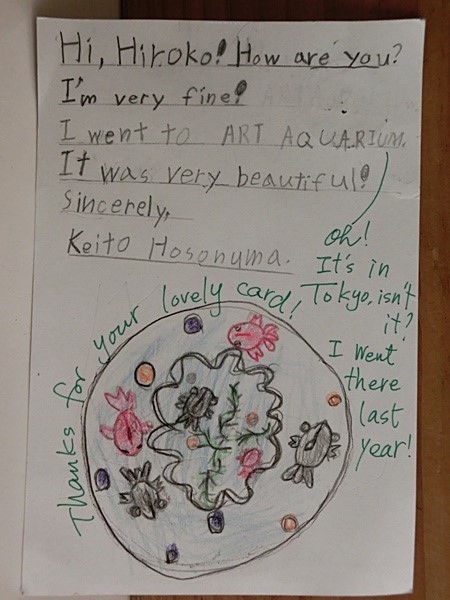 Hi, Hiroko! How are you?
I'm very fine!
I went to ART AQUARIUM.
It was very beautiful!
Sincerely,
Keito Hosonuma.
Oh!
It's in
Tokyo, isn't
it?
I went
there
last
year!
Thanks for your lovely card!